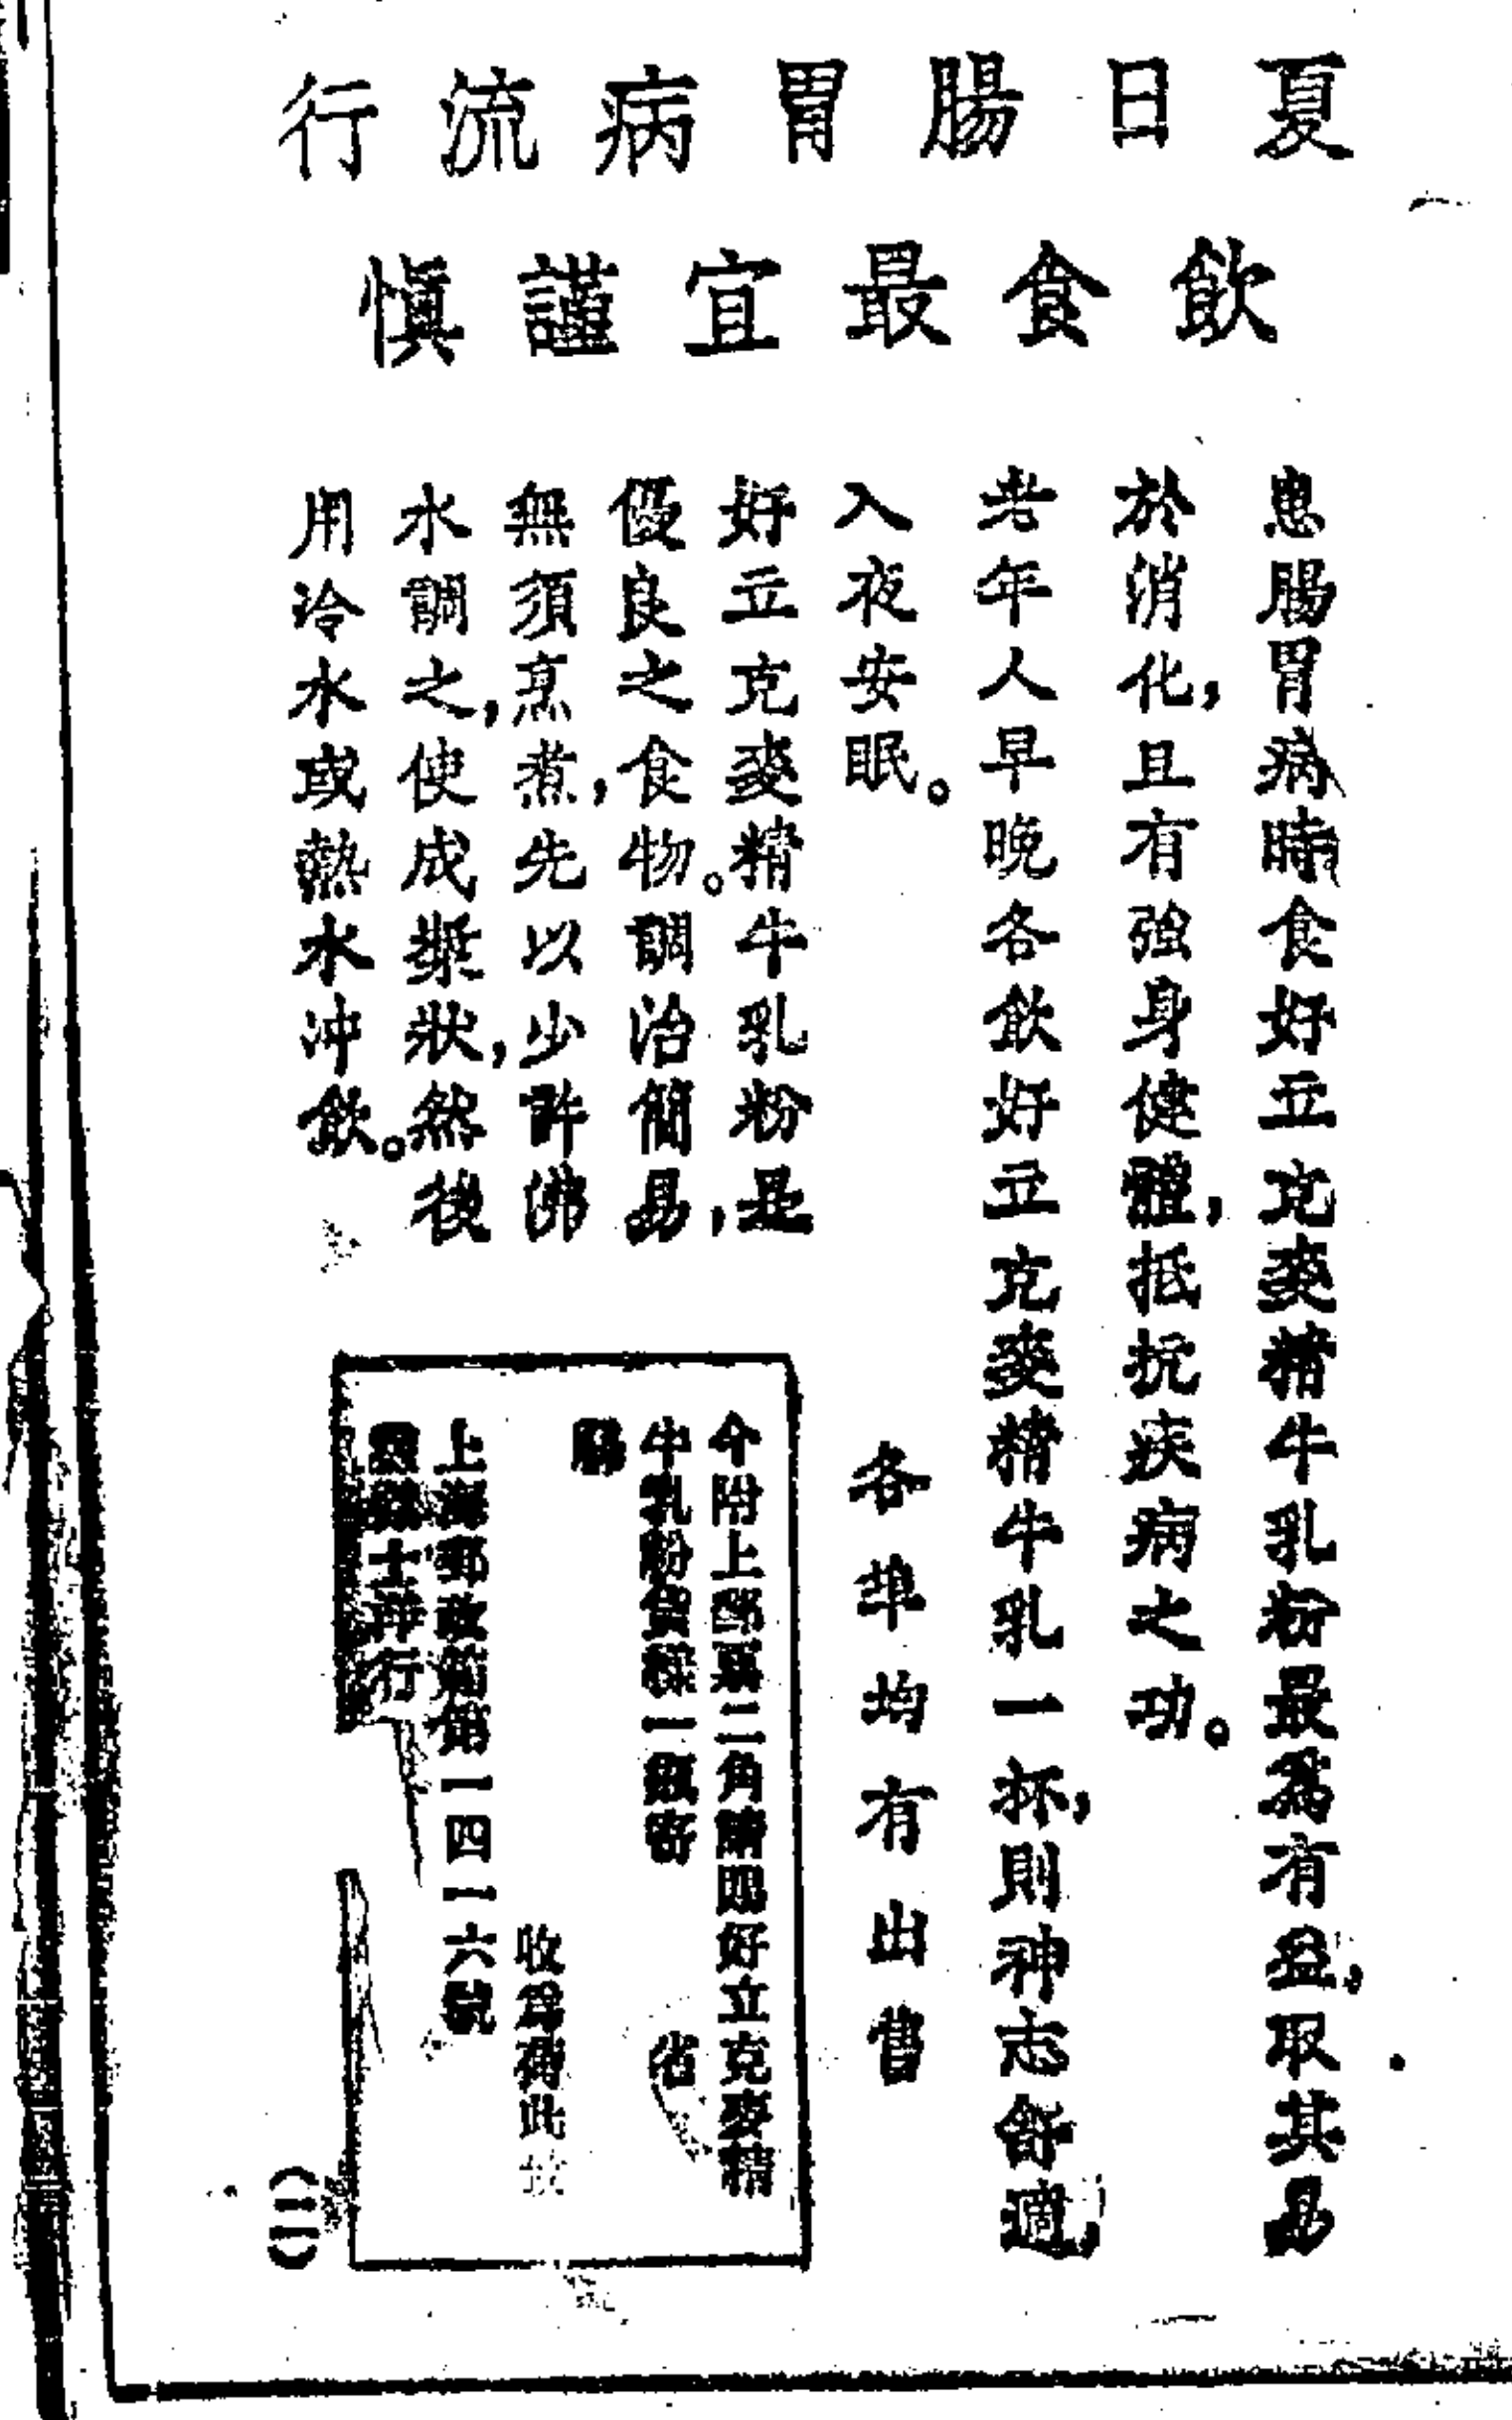 夏日腸胃病流行
飲食最宜謹慎
患腸胃病時食好立克麥精牛乳粉最爲有益，取其易
於消化，且有強身健體，抵抗疾病之功。
老年人早晚各飲好立克麥精牛乳一杯，則神志舒適
入夜安眠。
各埠均有出售
好立克麥精牛乳粉是
優良之食物。調治簡易，
無須烹煮，先以少許沸
水調之，使成漿狀，然後
用冷水或熱水冲飲。
今附上郵票二角請將好立克麥精
牛乳粉貨樣一瓶寄 省
縣
收爲荷此致
上海郵政信箱一四一六號
士洋行
(二)